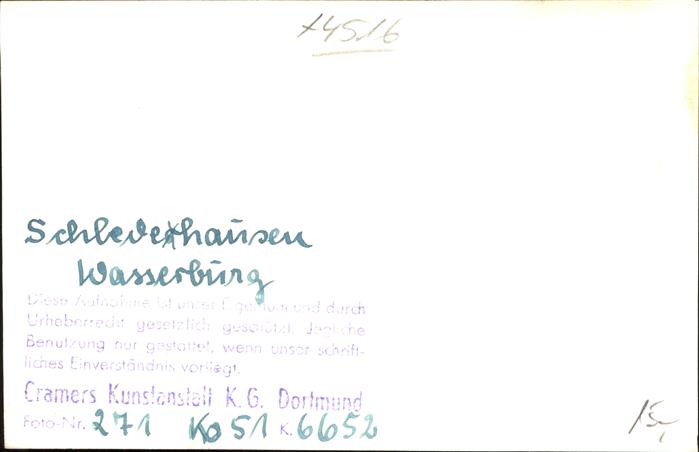 +4516
Schledehausen
Wasserburg
Diese Aufnahme ist unser Eigentum und durch
Urheberrecht gesetzlich geschützt. Jegliche
Benutzung nur gestattet, wenn unser schrift-
liches Einverständnis vorliegt.
Cramers Kunstanstalt K.G. Dortmund
Foto-Nr. 271 Ko 51 K. 6652
15,-